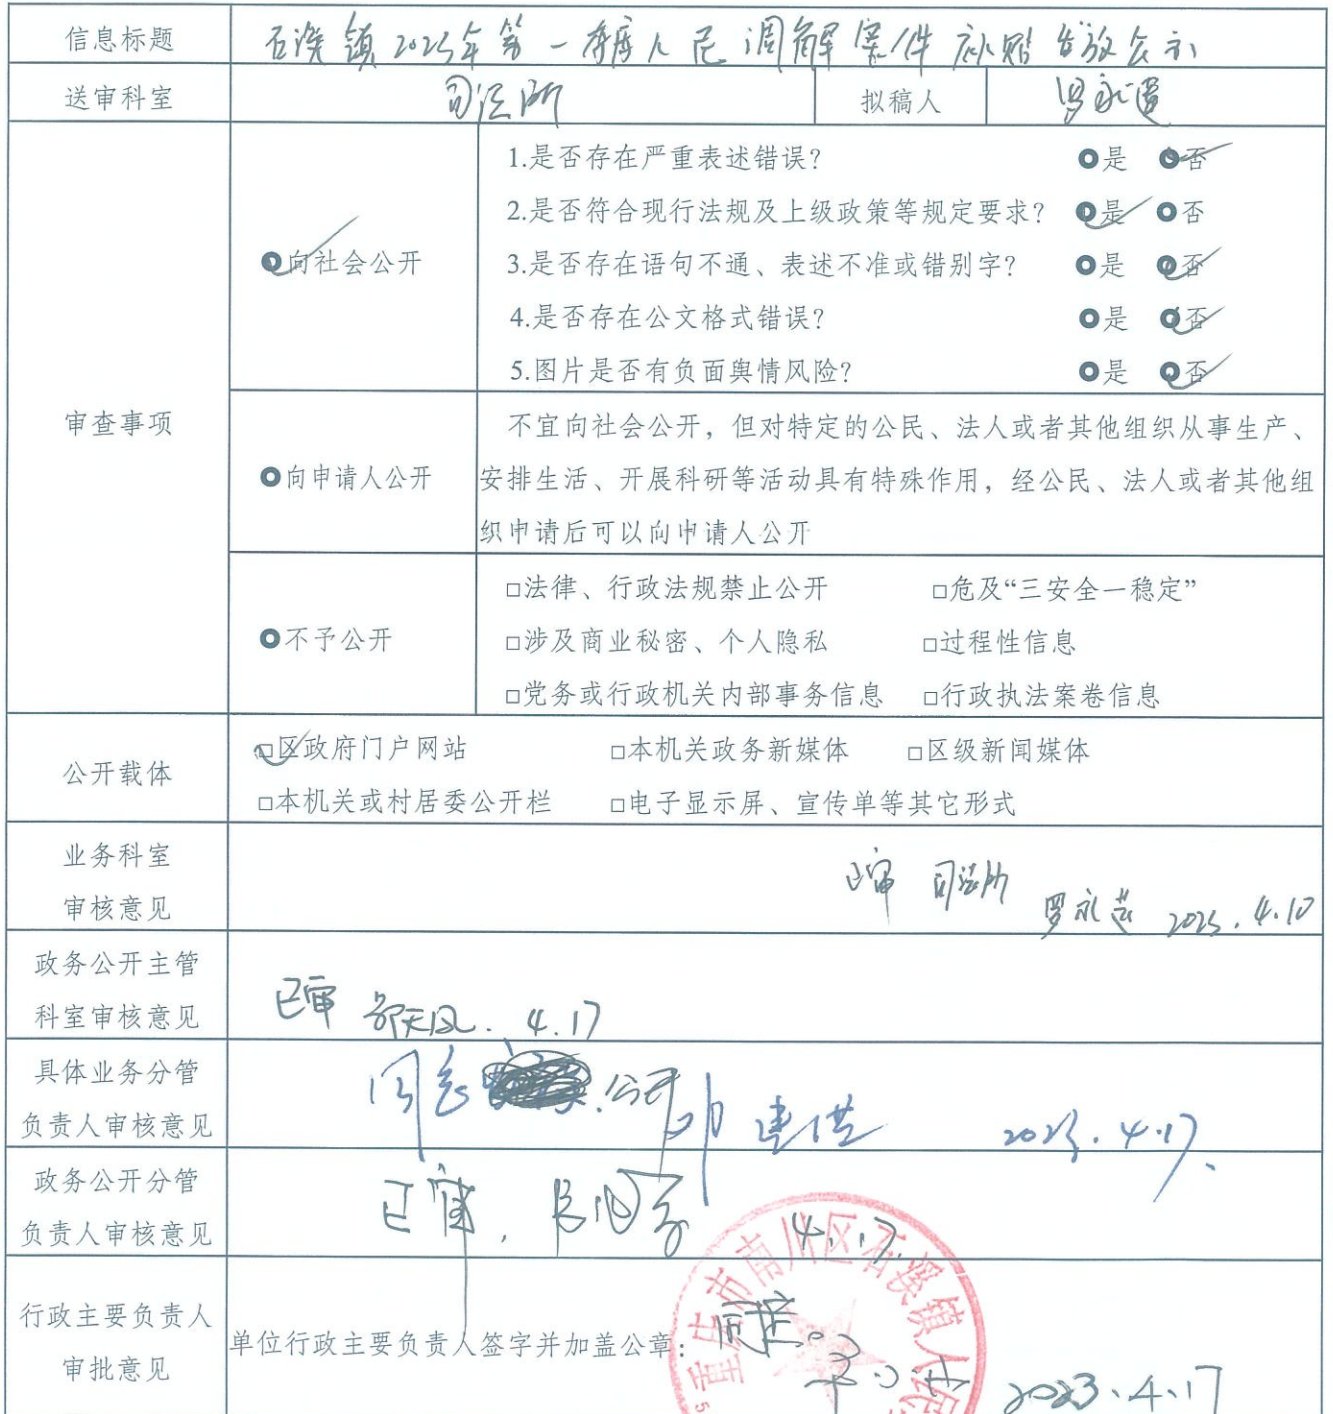 信息标题 石溪镇2025年第一季度人民调解案件补贴发放公示
送审科室 司法所 拟稿人
审查事项
向社会公开
1.是否存在严重表述错误? 是 否
2.是否符合现行法规及上级政策等规定要求? 是 否
3.是否存在语句不通、表述不准或错别字? 是 否
4.是否存在公文格式错误? 是 否
5.图片是否有负面舆情风险? 是 否
向申请人公开
不宜向社会公开，但对特定的公民、法人或者其他组织从事生产、
安排生活、开展科研等活动具有特殊作用，经公民、法人或者其他组
织申请后可以向申请人公开
不予公开
□法律、行政法规禁止公开 □危及“三安全一稳定”
□涉及商业秘密、个人隐私 □过程性信息
□党务或行政机关内部事务信息 □行政执法案卷信息
公开载体
□区政府门户网站 □本机关政务新媒体 □区级新闻媒体
□本机关或村居委公开栏 □电子显示屏、宣传单等其它形式
业务科室
审核意见
已审 司法所 2025.4.10
政务公开主管
科室审核意见
已审 4.17
具体业务分管
负责人审核意见
同意 公开 2025.4.17
政务公开分管
负责人审核意见
已审, 4.17.
行政主要负责人
审批意见
单位行政主要负责人签字并加盖公章:
重庆市南川区石溪镇人民
同意 2023.4.17